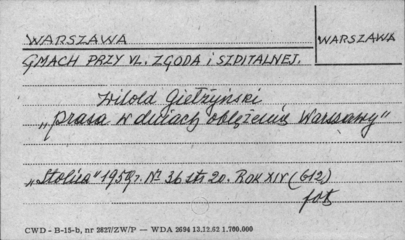 WARSZAWA
WARSZAWA
GMACH PRZY UL. ZGODA i SZPITALNEJ.
Witold Giełżyński
„Prasa w dniach oblężenia Warszawy"
„Stolica" 1959 r. № 36 str. 20. ROK XIV (612)
fot
CWD - B-15-b, nr 3827/ZW/P — WDA 2694 13.12.62 1.700.000